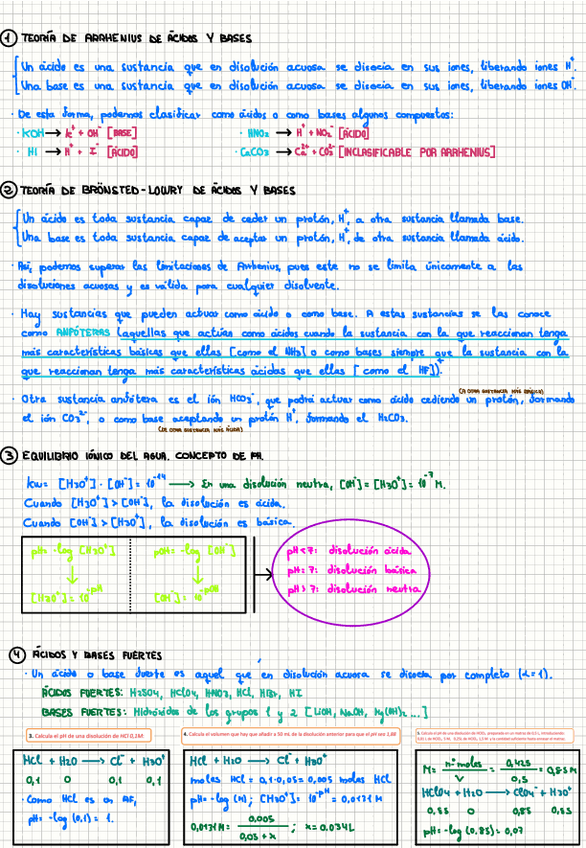 1 TEORÍA DE ARRHENIUS DE ÁCIDOS Y BASES
Un ácido es una sustancia que en disolución acuosa se disocia en sus iones, liberando iones H⁺.
Una base es una sustancia que en disolución acuosa se disocia en sus iones, liberando iones OH⁻.
· De esta forma, podemos clasificar como ácidos o como bases algunos compuestos:
· KOH → K⁺ + OH⁻ [BASE] · HNO₂ → H⁺ + NO₂⁻ [ÁCIDO]
· HI → H⁺ + I⁻ [ÁCIDO] · CaCO3 → Ca²⁺ + CO3²⁻ [INCLASIFICABLE POR ARRHENIUS]
2 TEORÍA DE BRÖNSTED-LOWRY DE ÁCIDOS Y BASES
Un ácido es toda sustancia capaz de ceder un protón, H⁺, a otra sustancia llamada base.
Una base es toda sustancia capaz de aceptar un protón, H⁺, de otra sustancia llamada ácido.
· Así, podemos superar las limitaciones de Arrhenius, pues este no se limita únicamente a las
disoluciones acuosas y es válida para cualquier disolvente.
· Hay sustancias que pueden actuar como ácido o como base. A estas sustancias se las conoce
como ANFÓTERAS (aquellas que actúan como ácidos cuando la sustancia con la que reaccionan tenga
más características básicas que ellas [como el NH3] o como bases siempre que la sustancia con la
que reaccionan tenga más características ácidas que ellas [como el HF]).
(DE OTRA SUSTANCIA MÁS BÁSICA)
· Otra sustancia anfótera es el ión HCO3⁻, que podrá actuar como ácido cediendo un protón, formando
el ión CO3²⁻, o como base aceptando un protón H⁺, formando el H2CO3.
(DE OTRA SUSTANCIA MÁS ÁCIDA)
3 EQUILIBRIO IÓNICO DEL AGUA. CONCEPTO DE PH.
Kw = [H3O⁺] · [OH⁻] = 10⁻¹⁴ → En una disolución neutra, [OH⁻] = [H3O⁺] = 10⁻⁷ M.
Cuando [H3O⁺] > [OH⁻], la disolución es ácida.
Cuando [OH⁻] > [H3O⁺], la disolución es básica.
pH = -log [H3O⁺] pOH = -log [OH⁻]
↓ ↓
[H3O⁺] = 10⁻ᵖᴴ [OH⁻] = 10⁻ᵖᴼᴴ
pH < 7: disolución ácida
pH = 7: disolución básica
pH > 7: disolución neutra
4 ÁCIDOS Y BASES FUERTES
· Un ácido o base fuerte es aquel que en disolución acuosa se disocia por completo (α = 1).
ÁCIDOS FUERTES: H2SO4, HClO4, HNO3, HCl, HBr, HI
BASES FUERTES: Hidróxidos de los grupos 1 y 2 [LiOH, NaOH, Mg(OH)2 ...]
3. Calcula el pH de una disolución de HCl 0,1M
HCl + H2O → Cl⁻ + H3O⁺
0,1 0 0,1 0,1
· Como HCl es un AF,
pH = -log (0,1) = 1.
4. Calcula el volumen que hay que añadir a 50 mL de la disolución anterior para que el pH sea 1,88
HCl + H2O → Cl⁻ + H3O⁺
moles HCl = 0,1·0,05 = 0,005 moles HCl
pH = -log (M); [H3O⁺] = 10⁻ᵖᴴ = 0,0131 M
0,0131 M = 0,005 / 0,05 + x ; x = 0.034L
M = nº moles / V = 0,425 / 0,5 = 0,85 M
HClO4 + H2O → ClO4⁻ + H3O⁺
0,85 0 0,85 0,85
pH = -log (0,85) = 0,07